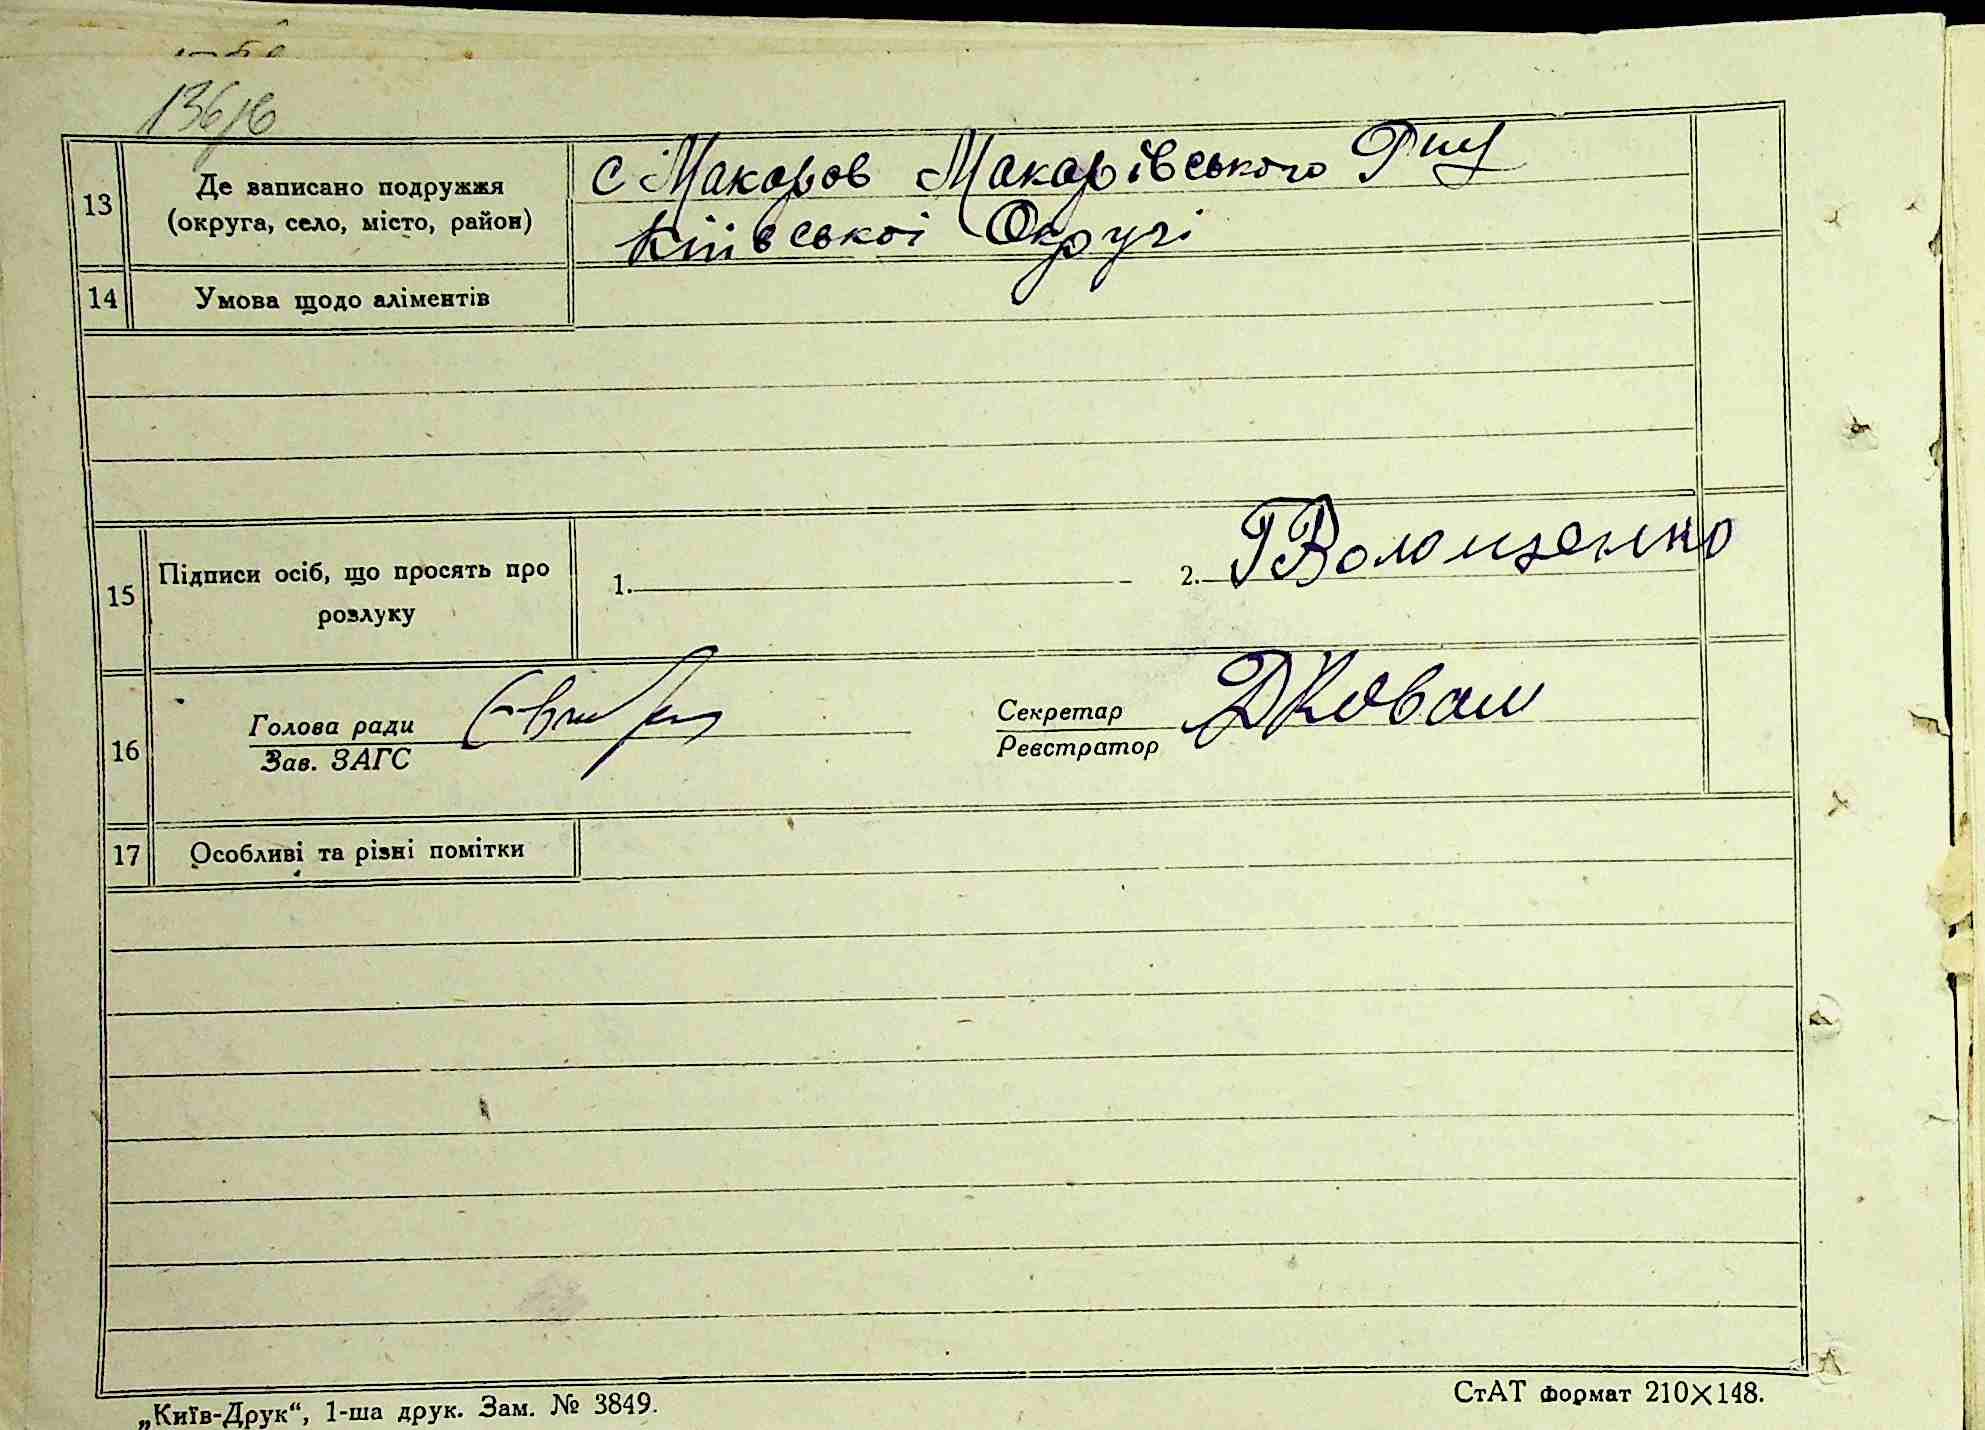 136
13
Де записано подружжя
(округа, село, місто, район)
с Макаров Макарівського
Київської Округі
14
Умова щодо аліментів
15
Підписи осіб, що просять про
розлуку
1.
2. ГВолощенко
16
Голова ради
Зав. ЗАГС
Секретар
Реєстратор
ДКоваль
17
Особливі та різні помітки
„Київ-Друк“, 1-ша друк. Зам. № 3849.
СтАТ формат 210×148.